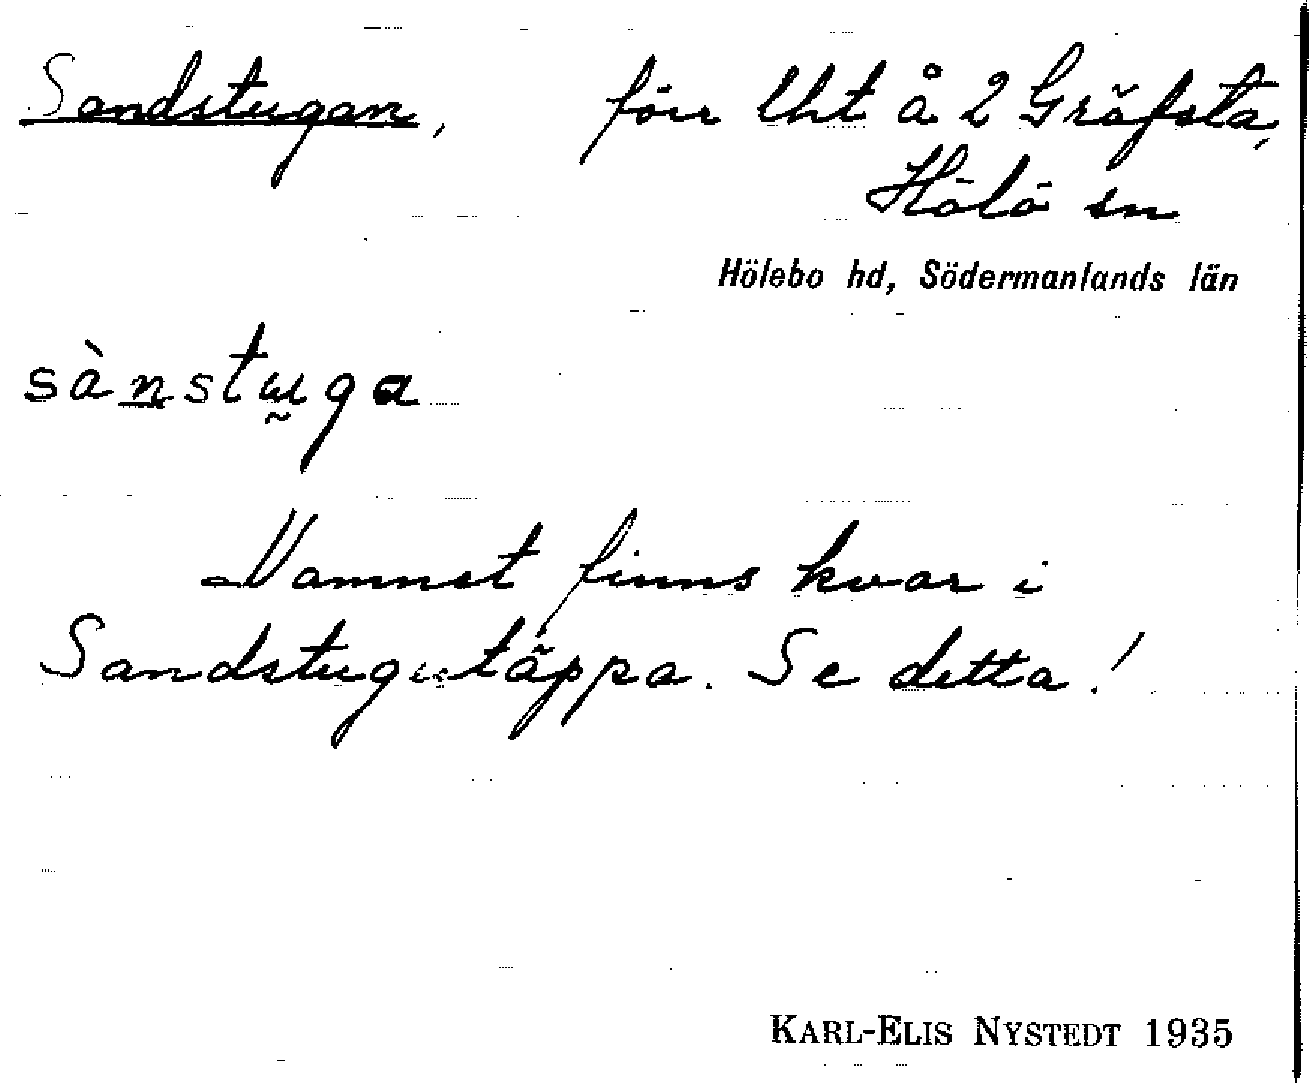 Sandstugan, förr lht å 2 Gräfsta,
Hölö sn
Hölebo hd, Södermanlands län
sànstuga
Namnet finns kvar i
Sandstugutäppa. Se detta!
KARL-ELIS NYSTEDT 1935